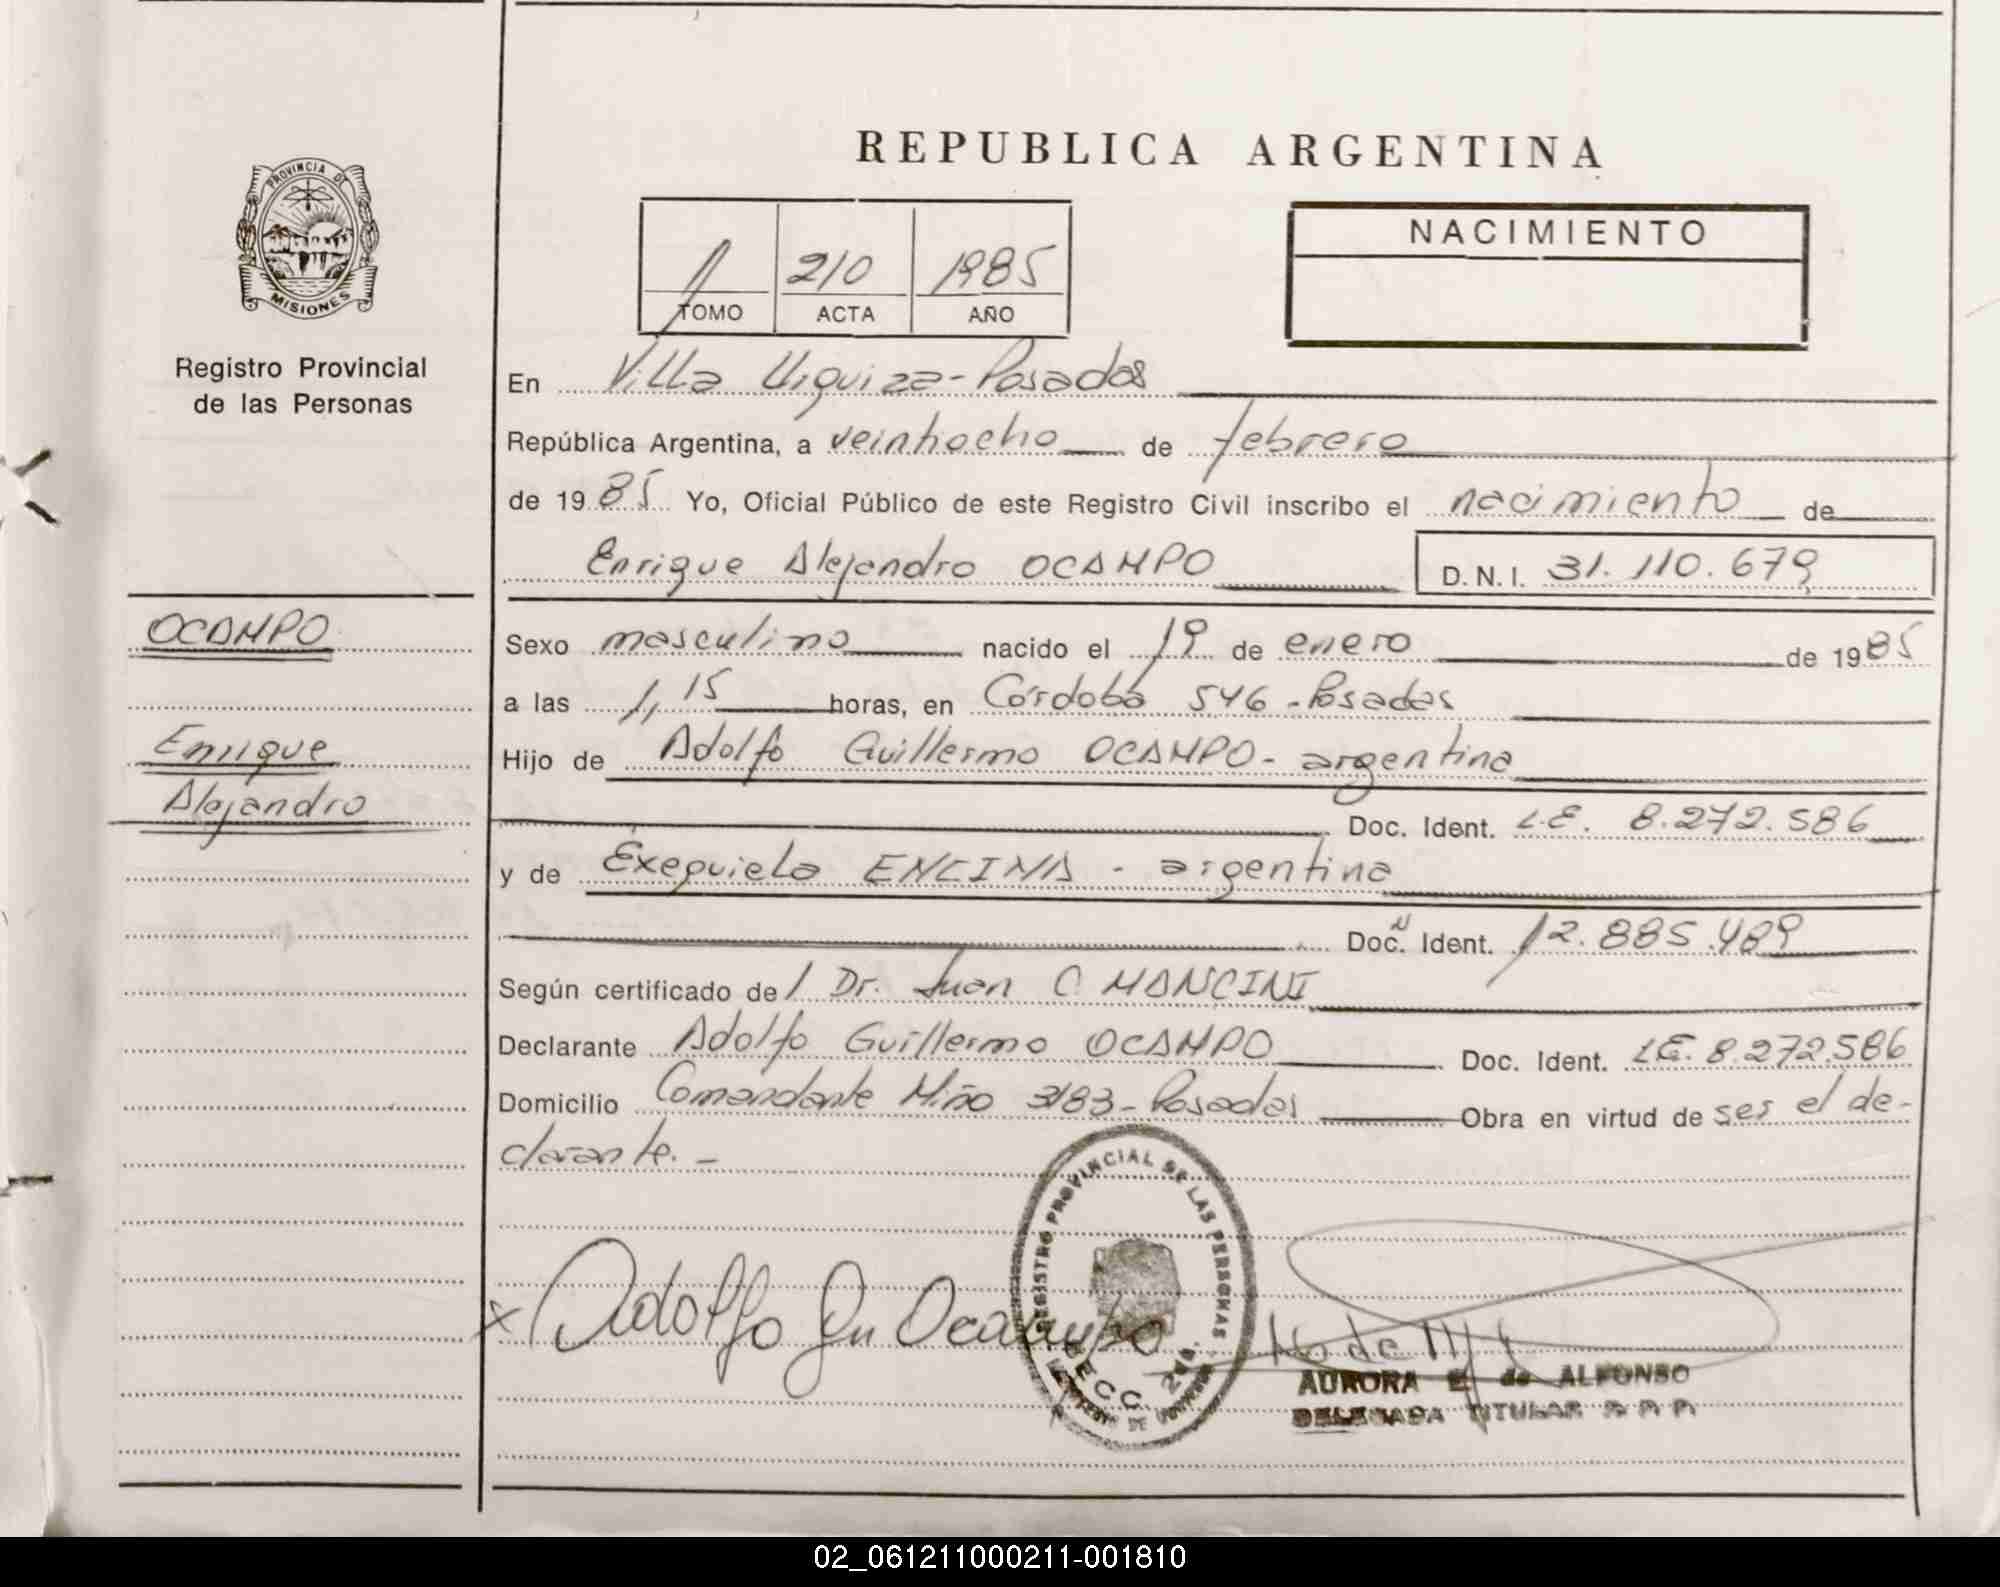 REPUBLICA ARGENTINA
PROVINCIA DE
MISIONES
Registro Provincial
de las Personas
1 210 1985
TOMO ACTA AÑO
NACIMIENTO
En Villa Urquiza-Posadas
República Argentina, a veintiocho de febrero
de 1985 Yo, Oficial Público de este Registro Civil inscribo el nacimiento de
Enrique Alejandro OCAMPO D.N.I. 31.110.679
OCAMPO
Enrique
Alejandro
Sexo masculino nacido el 19 de enero de 1985
a las 1,15 horas, en Córdoba 546 - Posadas
Hijo de Adolfo Guillermo OCAMPO - argentina
Doc. Ident. L.E. 8.272.586
y de Exequiela ENCINA - argentina
Doc. Ident. 12.885.489
Según certificado de / Dr. Juan C MANCINI
Declarante Adolfo Guillermo OCAMPO Doc. Ident. L.E. 8.272.586
Domicilio Comandante Miño 3183 - Posadas Obra en virtud de ser el de-
clarante. -
x Adolfo Gu Ocampo
REGISTRO PROVINCIAL DE LAS PERSONAS
SECC.
AURORA E de ALFONSO
DELEGADA TITULAR
02_061211000211-001810